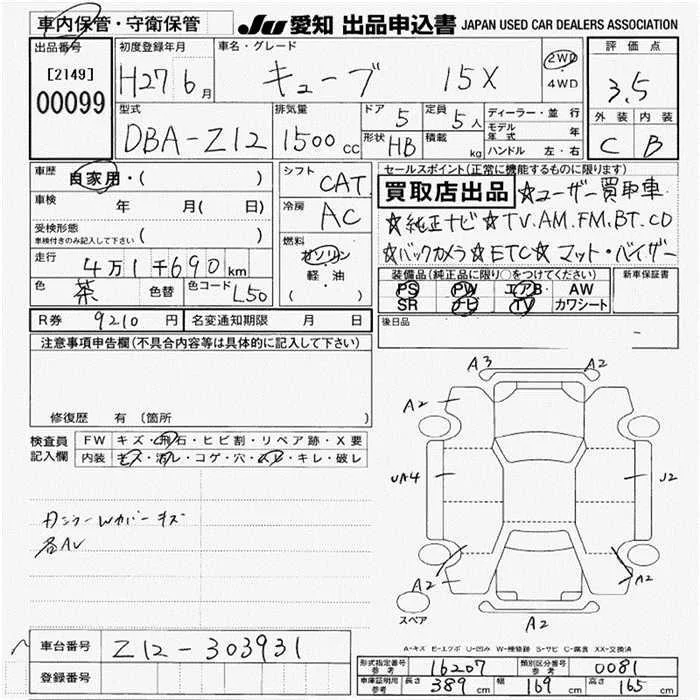 車内保管・守衛保管
JU 愛知 出品申込書 JAPAN USED CAR DEALERS ASSOCIATION
出品番号
[2149]
00099
初度登録年月
H27 6月
車名・グレード
キューブ 15X
2WD
4WD
評価点
3.5
外装 内装
C B
型式
DBA-Z12
排気量
1500cc
ドア 5
形状 HB
定員 5人
積載 kg
ディーラー・並行
モデル年式 年
ハンドル 左・右
車歴 自家用・( )
車検 年 月( 日)
受検形態
車検付きのみ記入して下さい ( )
走行 4万1千690km
色 茶 色替 色コード L50
シフト CAT
冷房 AC
燃料
ガソリン
軽・油
( ・ )
セールスポイント(正常に機能するものに限ります)
買取店出品 ☆ユーザー買取車
☆純正ナビ☆TV.AM.FM.BT.CD
☆バックカメラ☆ETC☆マット・バイザー
装備品(純正品に限り○をつけてください)
PS PW エアB AW
SR ナビ TV カワシート
新車保証書
R券 9210円 名変通知期限 月 日
後日品
注意事項申告欄(不具合内容等は具体的に記入して下さい)
修復歴 有(箇所 )
検査員記入欄
FW キズ・飛石・ヒビ割・リペア跡・X要
内装 キズ・汚レ・コゲ・穴・スレ・キレ・破レ
各AV
A3 A2
A2 A2
UA4 J2
A2 A2
A2
スペア
A-キズ E-エクボ U-凹み W-補修跡 S-サビ C-腐食 XX-交換済
車台番号 Z12-303931
登録番号
形式指定番号 参考 16207 類別区分番号 参考 0081
車庫証明用 参考 長さ 389cm 幅 169cm 高さ 165cm